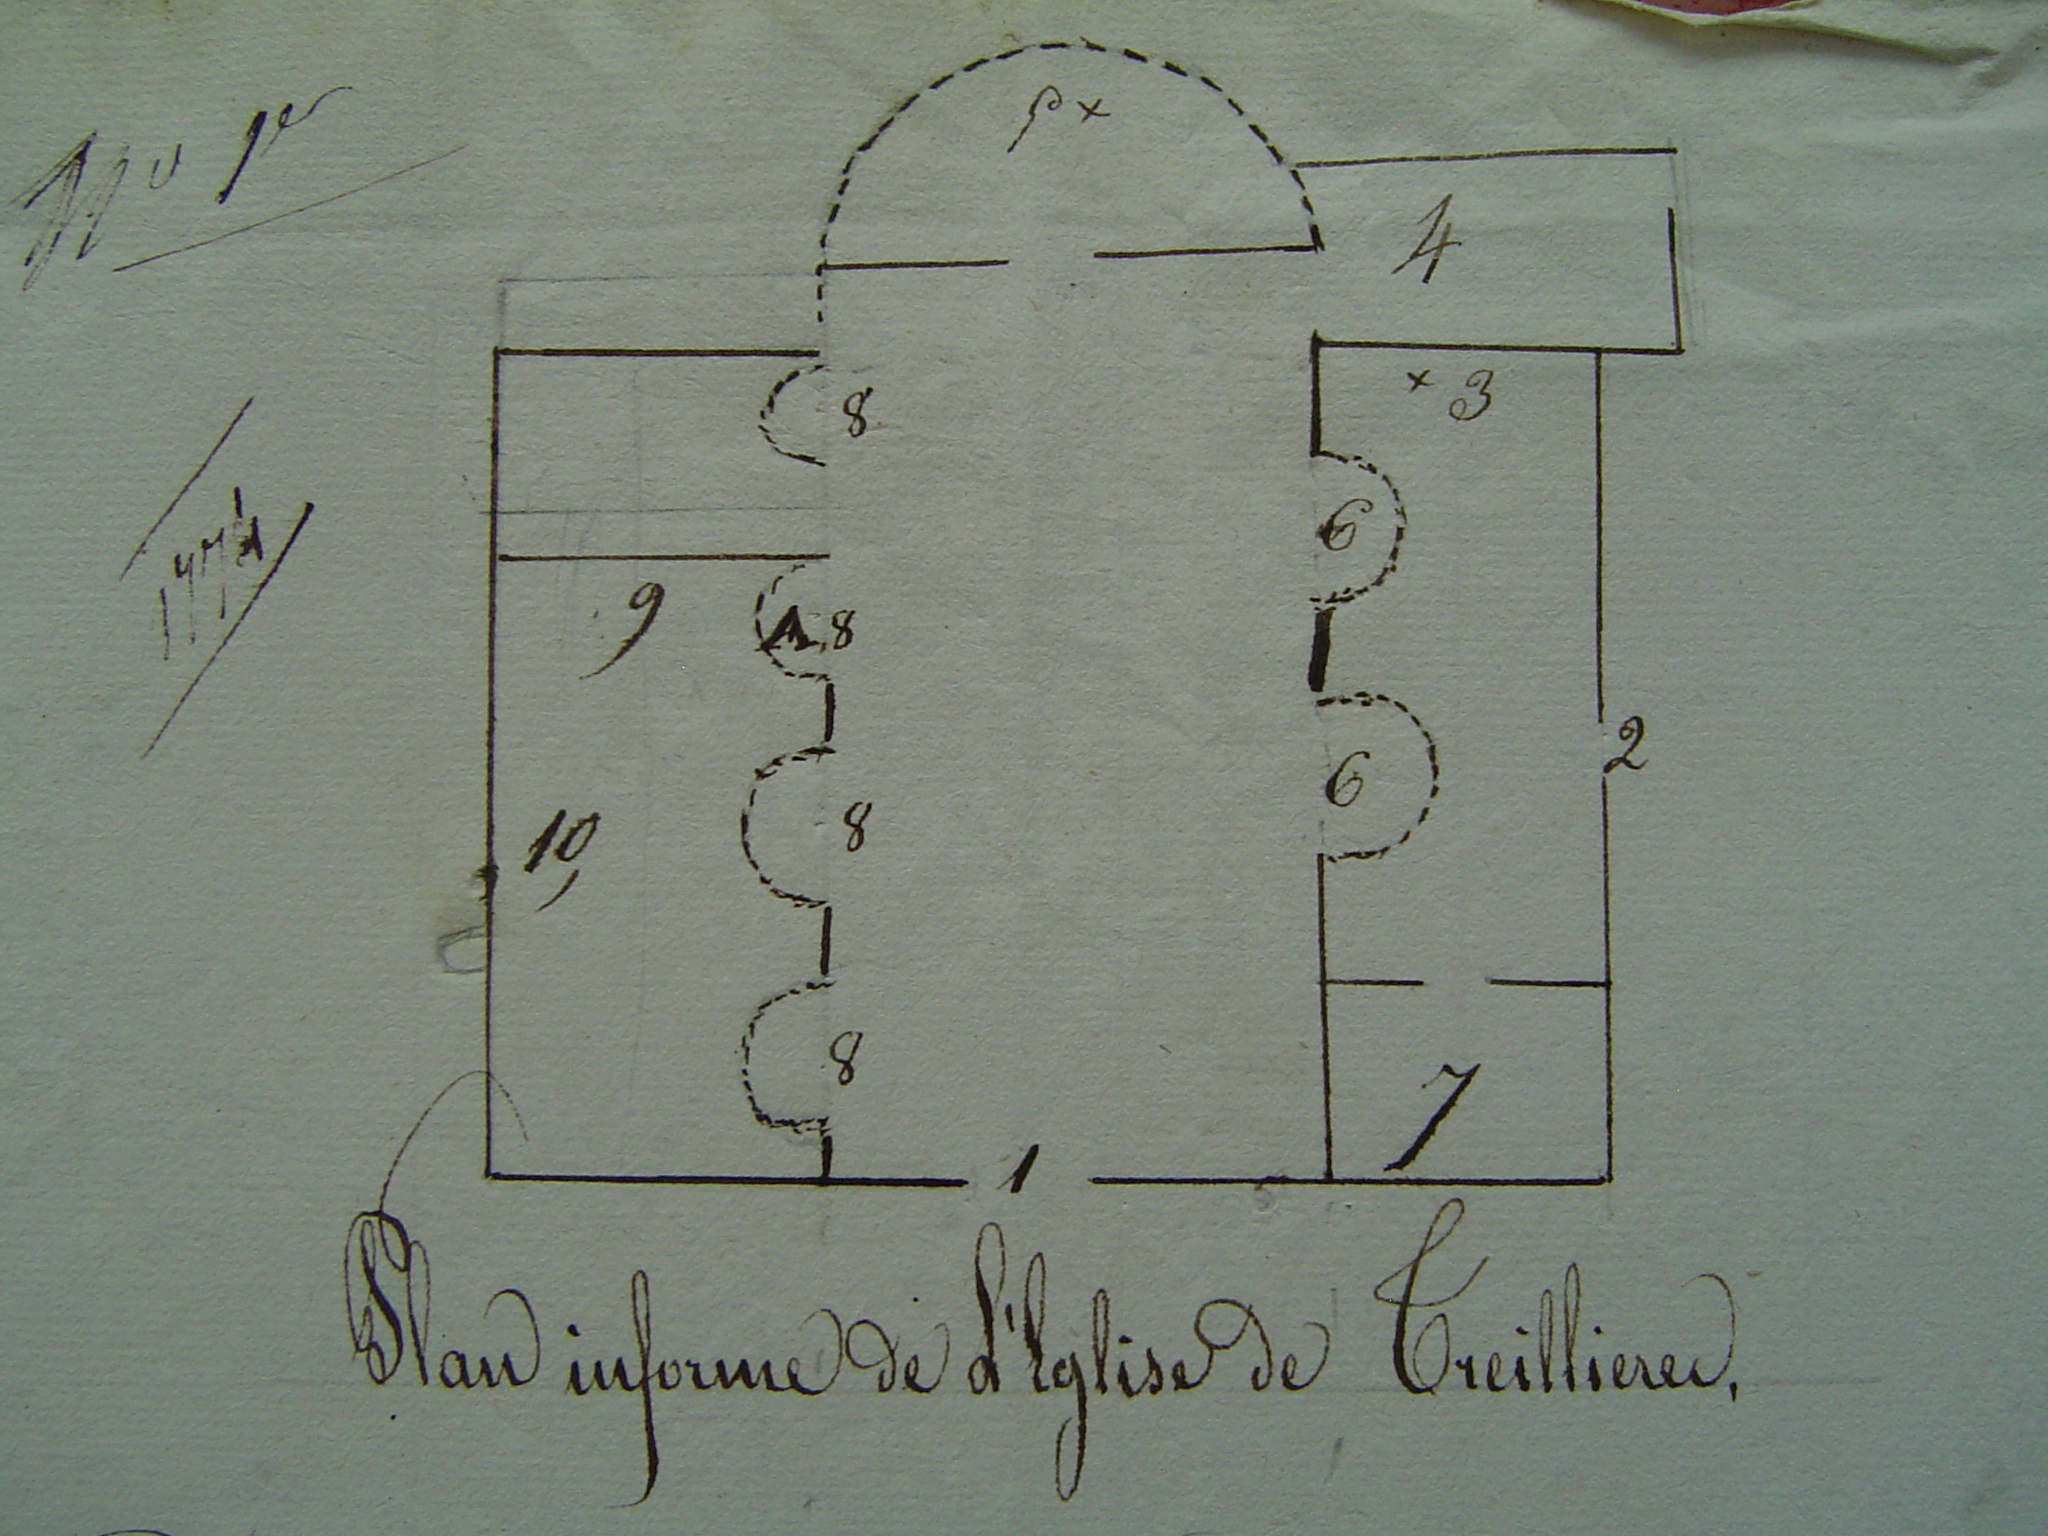 No 1er
5 x
4
x 3
8
6
1774
9
8
2
6
8
10,
8
7
1
Plan informe de l'Eglise de Treillieres,